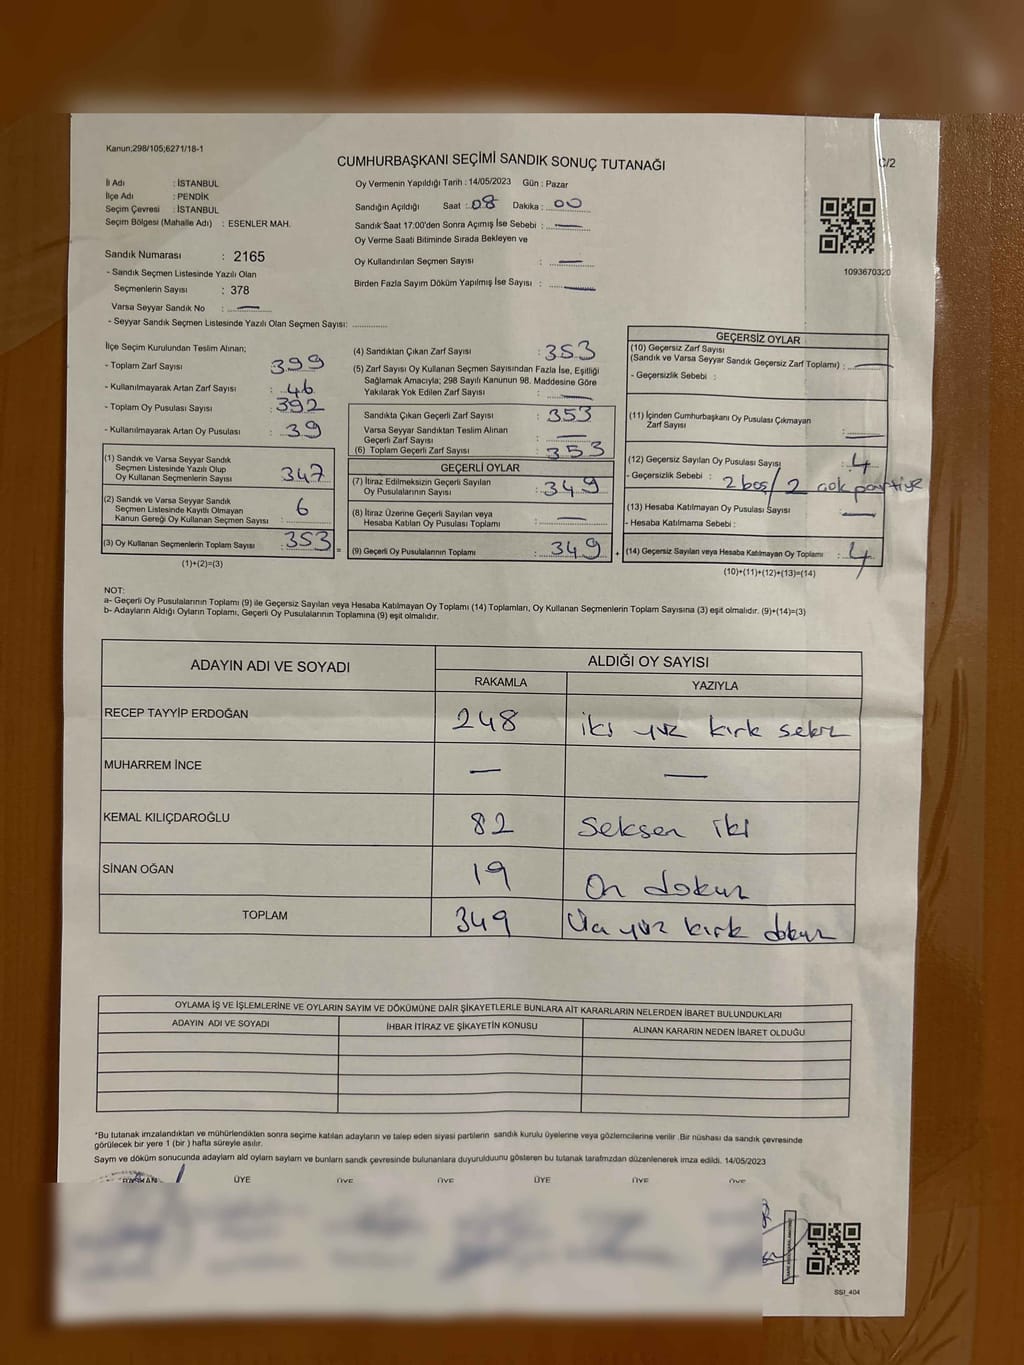 Kanun;298/105;6271/18-1
CUMHURBAŞKANI SEÇİMİ SANDIK SONUÇ TUTANAĞI
C/2
İl Adı : İSTANBUL
İlçe Adı : PENDİK
Seçim Çevresi : İSTANBUL
Seçim Bölgesi (Mahalle Adı) : ESENLER MAH.
Sandık Numarası : 2165
- Sandık Seçmen Listesinde Yazılı Olan
Seçmenlerin Sayısı : 378
Varsa Seyyar Sandık No : —
- Seyyar Sandık Seçmen Listesinde Yazılı Olan Seçmen Sayısı: ............
Oy Vermenin Yapıldığı Tarih : 14/05/2023 Gün : Pazar
Sandığın Açıldığı Saat : 08 Dakika : 00
Sandık Saat 17:00'den Sonra Açımış İse Sebebi : —
Oy Verme Saati Bitiminde Sırada Bekleyen ve
Oy Kullandırılan Seçmen Sayısı : —
Birden Fazla Sayım Döküm Yapılmış İse Sayısı : —
1093670320
İlçe Seçim Kurulundan Teslim Alınan;
- Toplam Zarf Sayısı : 399
- Kullanılmayarak Artan Zarf Sayısı : 46
- Toplam Oy Pusulası Sayısı : 392
- Kullanılmayarak Artan Oy Pusulası : 39
(1) Sandık ve Varsa Seyyar Sandık
Seçmen Listesinde Yazılı Olup
Oy Kullanan Seçmenlerin Sayısı : 347
(2) Sandık ve Varsa Seyyar Sandık
Seçmen Listesinde Kayıtlı Olmayan
Kanun Gereği Oy Kullanan Seçmen Sayısı : 6
(3) Oy Kullanan Seçmenlerin Toplam Sayısı : 353
(1)+(2)=(3)
=
(4) Sandıktan Çıkan Zarf Sayısı : 353
(5) Zarf Sayısı Oy Kullanan Seçmen Sayısından Fazla İse, Eşitliği
Sağlamak Amacıyla; 298 Sayılı Kanunun 98. Maddesine Göre
Yakılarak Yok Edilen Zarf Sayısı : —
Sandıkta Çıkan Geçerli Zarf Sayısı : 353
Varsa Seyyar Sandıktan Teslim Alınan
Geçerli Zarf Sayısı : —
(6) Toplam Geçerli Zarf Sayısı : 353
GEÇERLİ OYLAR
(7) İtiraz Edilmeksizin Geçerli Sayılan
Oy Pusulalarının Sayısı : 349
(8) İtiraz Üzerine Geçerli Sayılan veya
Hesaba Katılan Oy Pusulası Toplamı : —
(9) Geçerli Oy Pusulalarının Toplamı : 349
+
GEÇERSİZ OYLAR
(10) Geçersiz Zarf Sayısı
(Sandık ve Varsa Seyyar Sandık Geçersiz Zarf Toplamı) : —
- Geçersizlik Sebebi :
(11) İçinden Cumhurbaşkanı Oy Pusulası Çıkmayan
Zarf Sayısı : —
(12) Geçersiz Sayılan Oy Pusulası Sayısı : 4
- Geçersizlik Sebebi : 2 boş / 2 çok partiye
(13) Hesaba Katılmayan Oy Pusulası Sayısı : —
- Hesaba Katılmama Sebebi :
(14) Geçersiz Sayılan veya Hesaba Katılmayan Oy Toplamı : 4
(10)+(11)+(12)+(13)=(14)
NOT:
a- Geçerli Oy Pusulalarının Toplamı (9) ile Geçersiz Sayılan veya Hesaba Katılmayan Oy Toplamı (14) Toplamları, Oy Kullanan Seçmenlerin Toplam Sayısına (3) eşit olmalıdır. (9)+(14)=(3)
b- Adayların Aldığı Oyların Toplamı, Geçerli Oy Pusulalarının Toplamına (9) eşit olmalıdır.
ADAYIN ADI VE SOYADI ALDIĞI OY SAYISI
RAKAMLA YAZIYLA
RECEP TAYYİP ERDOĞAN 248 iki yüz kırk sekiz
MUHARREM İNCE — —
KEMAL KILIÇDAROĞLU 82 Seksen iki
SİNAN OĞAN 19 On dokuz
TOPLAM 349 Üç yüz kırk dokuz
OYLAMA İŞ VE İŞLEMLERİNE VE OYLARIN SAYIM VE DÖKÜMÜNE DAİR ŞİKAYETLERLE BUNLARA AİT KARARLARIN NELERDEN İBARET BULUNDUKLARI
ADAYIN ADI VE SOYADI İHBAR İTİRAZ VE ŞİKAYETİN KONUSU ALINAN KARARIN NEDEN İBARET OLDUĞU
*Bu tutanak imzalandıktan ve mühürlendikten sonra seçime katılan adayların ve talep eden siyasi partilerin sandık kurulu üyelerine veya gözlemcilerine verilir .Bir nüshası da sandık çevresinde
görülecek bir yere 1 (bir ) hafta süreyle asılır.
Saym ve döküm sonucunda adaylarn ald oylarn saylarn ve bunlarn sandk çevresinde bulunanlara duyurulduunu gösteren bu tutanak tarafmzdan düzenlenerek imza edildi. 14/05/2023
BAŞKAN ÜYE ÜYE ÜYE ÜYE ÜYE ÜYE
SSI_404